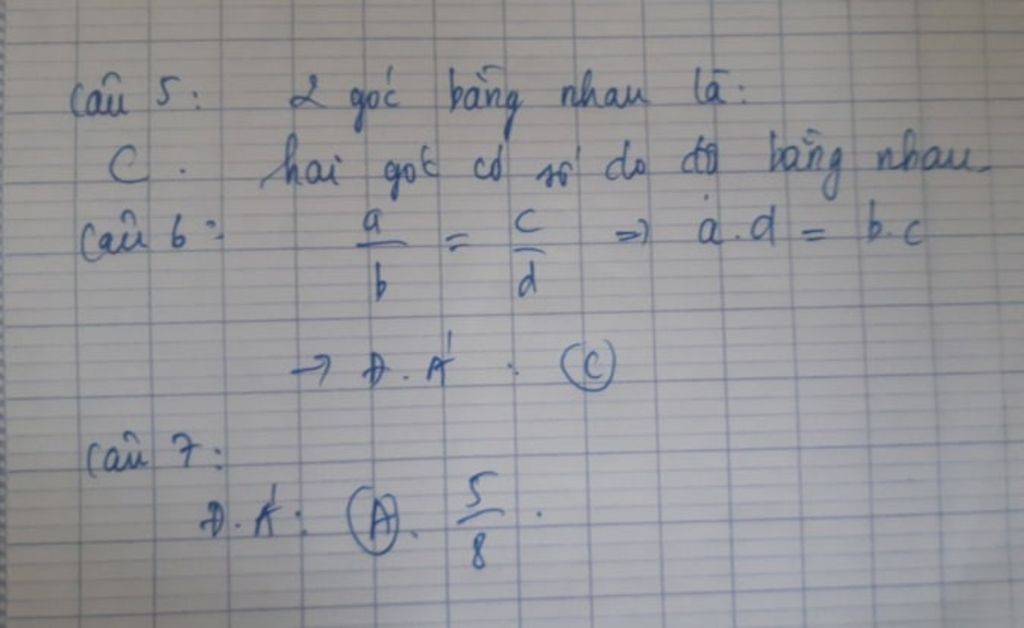 Câu 5: 2 góc bằng nhau là:
C. hai góc có số đo độ bằng nhau
Câu 6: a/b = c/d => a.d = b.c
→ Đ.Á: C
Câu 7:
Đ.Á: A. 5/8.